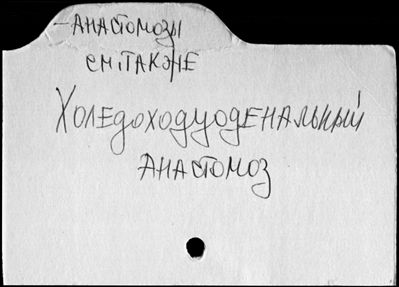 - АНАСТОМОЗЫ
см. ТАКЖЕ
ХОЛЕДОХОДУОДЕНАЛЬНЫЙ
АНАСТОМОЗ